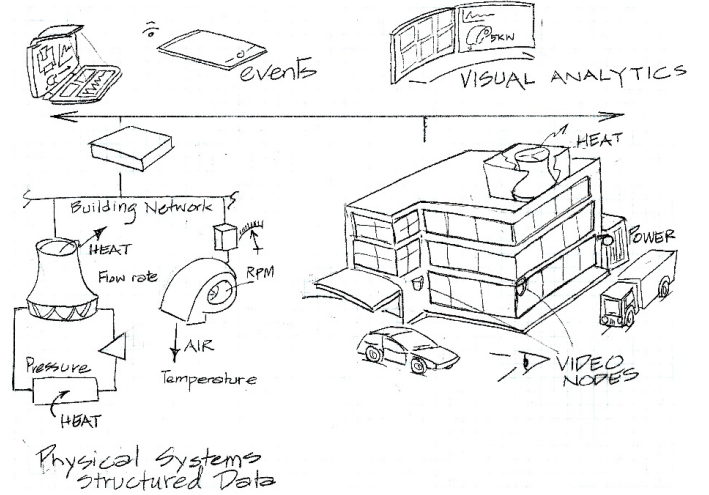 events
5KW
VISUAL ANALYTICS
HEAT
Building Network
HEAT
Flow rate
RPM
POWER
AIR
Pressure
Temperature
VIDEO
NODES
HEAT
Physical Systems
Structured Data